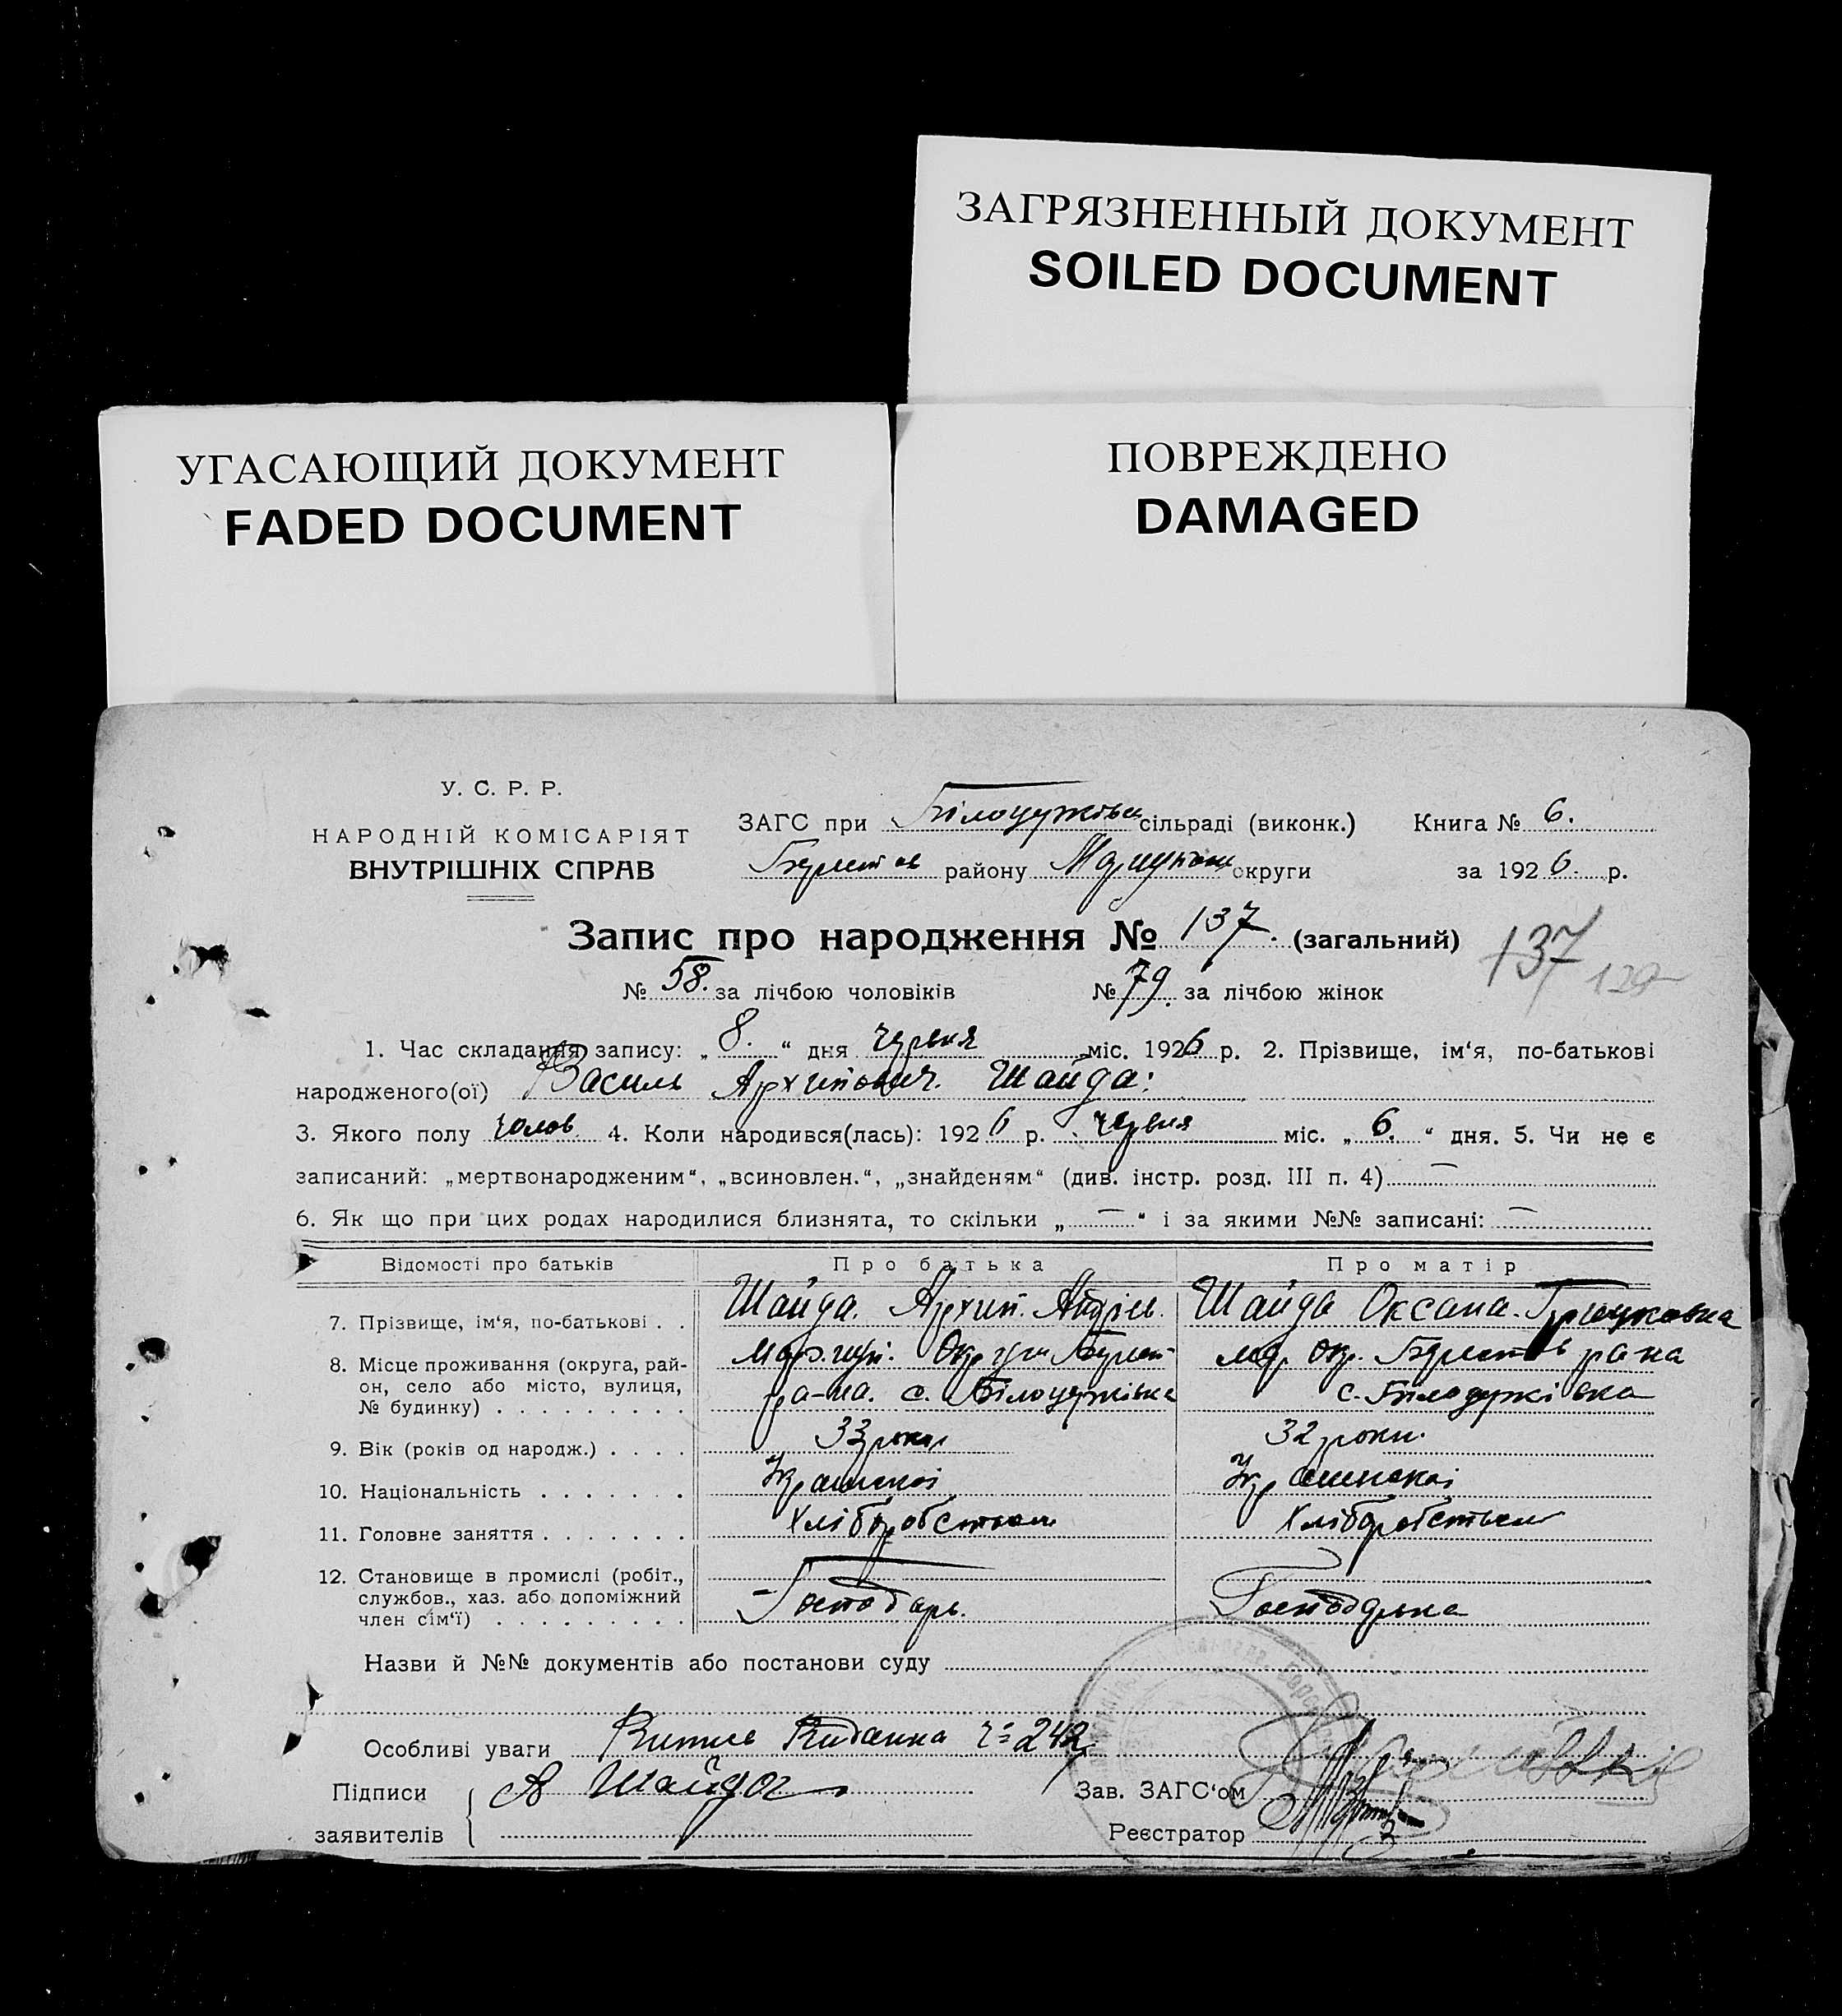 ЗАГРЯЗНЕННЫЙ ДОКУМЕНТ
SOILED DOCUMENT
УГАСАЮЩИЙ ДОКУМЕНТ
FADED DOCUMENT
ПОВРЕЖДЕНО
DAMAGED
У. С. Р. Р.
НАРОДНІЙ КОМІСАРІЯТ
ВНУТРІШНІХ СПРАВ
ЗАГС при Білоцерківськ сільраді (виконк.) Книга № 6.
району Маріупол округи за 1926. р.
Запис про народження № 137. (загальний) 137
№ 58. за лічбою чоловіків № 79. за лічбою жінок
1. Час складання запису: „8.“ дня червня міс. 1926 р. 2. Прізвище, ім‘я, по-батькові
народженого(ої) Василь Архипович. Шайда:
3. Якого полу чолов. 4. Коли народився(лась): 1926 р. червня міс. „6.“ дня. 5. Чи не є
записаний: „мертвонародженим“, „всиновлен.“, „знайденям“ (див. інстр. розд. III п. 4) —
6. Як що при цих родах народилися близнята, то скільки „—“ і за якими №№ записані: —
Відомості про батьків Про батька Про матір
7. Прізвище, ім‘я, по-батькові . . Шайда. Архип. Андрієв. Шайда Оксана. Грицьковна
8. Місце проживання (округа, рай-
он, село або місто, вулиця,
№ будинку) . . . . . . . . . р-на. с. Білоцерківка с. Білоцерківка
9. Вік (років од народж.) . . . . 33 роки 32 роки.
10. Національність . . . . . . . Українскої Українскої
11. Головне заняття . . . . . . . Хліборобством Хліборобством
12. Становище в промислі (робіт.,
службов., хаз. або допоміжний
член сім‘ї) . . . . . . . . . Господарь. Господарька
Назви й №№ документів або постанови суду
Особливі уваги Витис Видання 242
Підписи А Шайда Зав. ЗАГС‘ом
заявителів Реєстратор